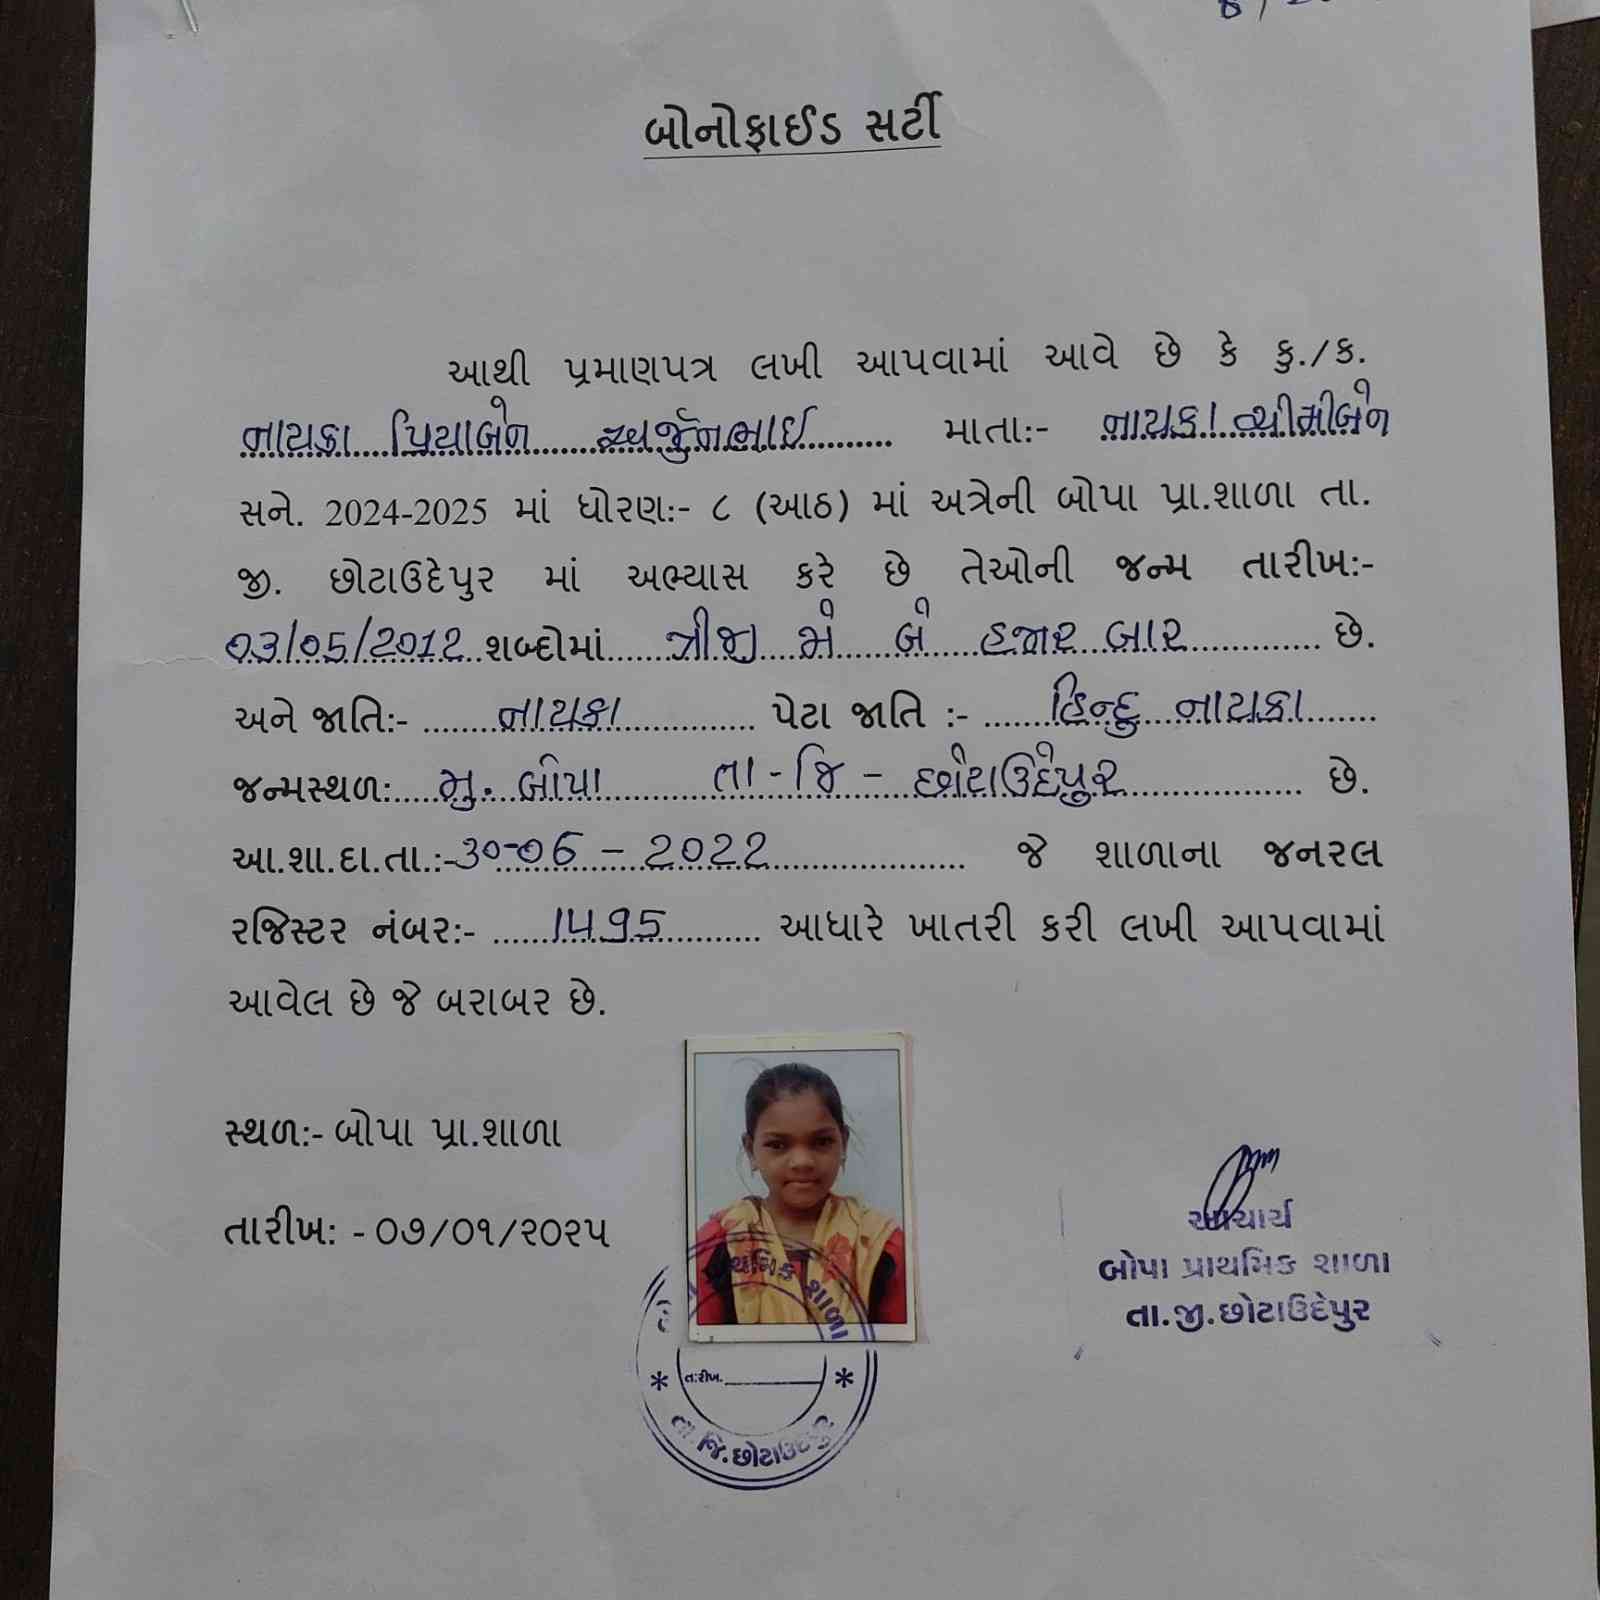 બોનોફાઈડ સર્ટી
આથી પ્રમાણપત્ર લખી આપવામાં આવે છે કે કુ./ક.
નાયકા પ્રિયાબેન અર્જુનભાઈ માતા:- નાયકા
સને. 2024-2025 માં ધોરણ:- ૮ (આઠ) માં અત્રેની બોપા પ્રા.શાળા તા.
જી. છોટાઉદેપુર માં અભ્યાસ કરે છે તેઓની જન્મ તારીખ:-
03/05/2012 શબ્દોમાં ત્રીજી મે બે હજાર બાર છે.
અને જાતિ:- નાયકા પેટા જાતિ :- હિન્દુ નાયકા
જન્મસ્થળ: મુ. બોપા તા - જિ - છોટાઉદેપુર છે.
આ.શા.દા.તા.:- 30-06-2022 જે શાળાના જનરલ
રજિસ્ટર નંબર:- 1495 આધારે ખાતરી કરી લખી આપવામાં
આવેલ છે જે બરાબર છે.
સ્થળ:- બોપા પ્રા.શાળા
તારીખ: - ૦૭/૦૧/૨૦૨૫
આચાર્ય
બોપા પ્રાથમિક શાળા
તા.જી.છોટાઉદેપુર
શાળા
* તારીખ. *
તા. જિ. છોટાઉદેપુર